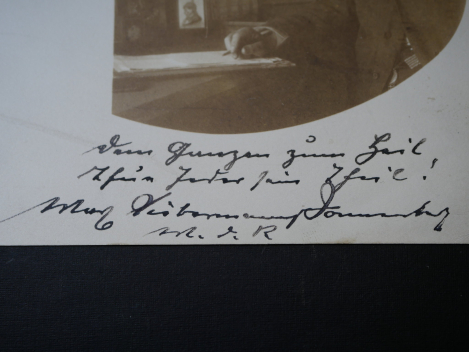 Dem Ganzen zum Heil
Thue Jeder sein Theil!
Max Liebermann Sonnenberg
M. d. R